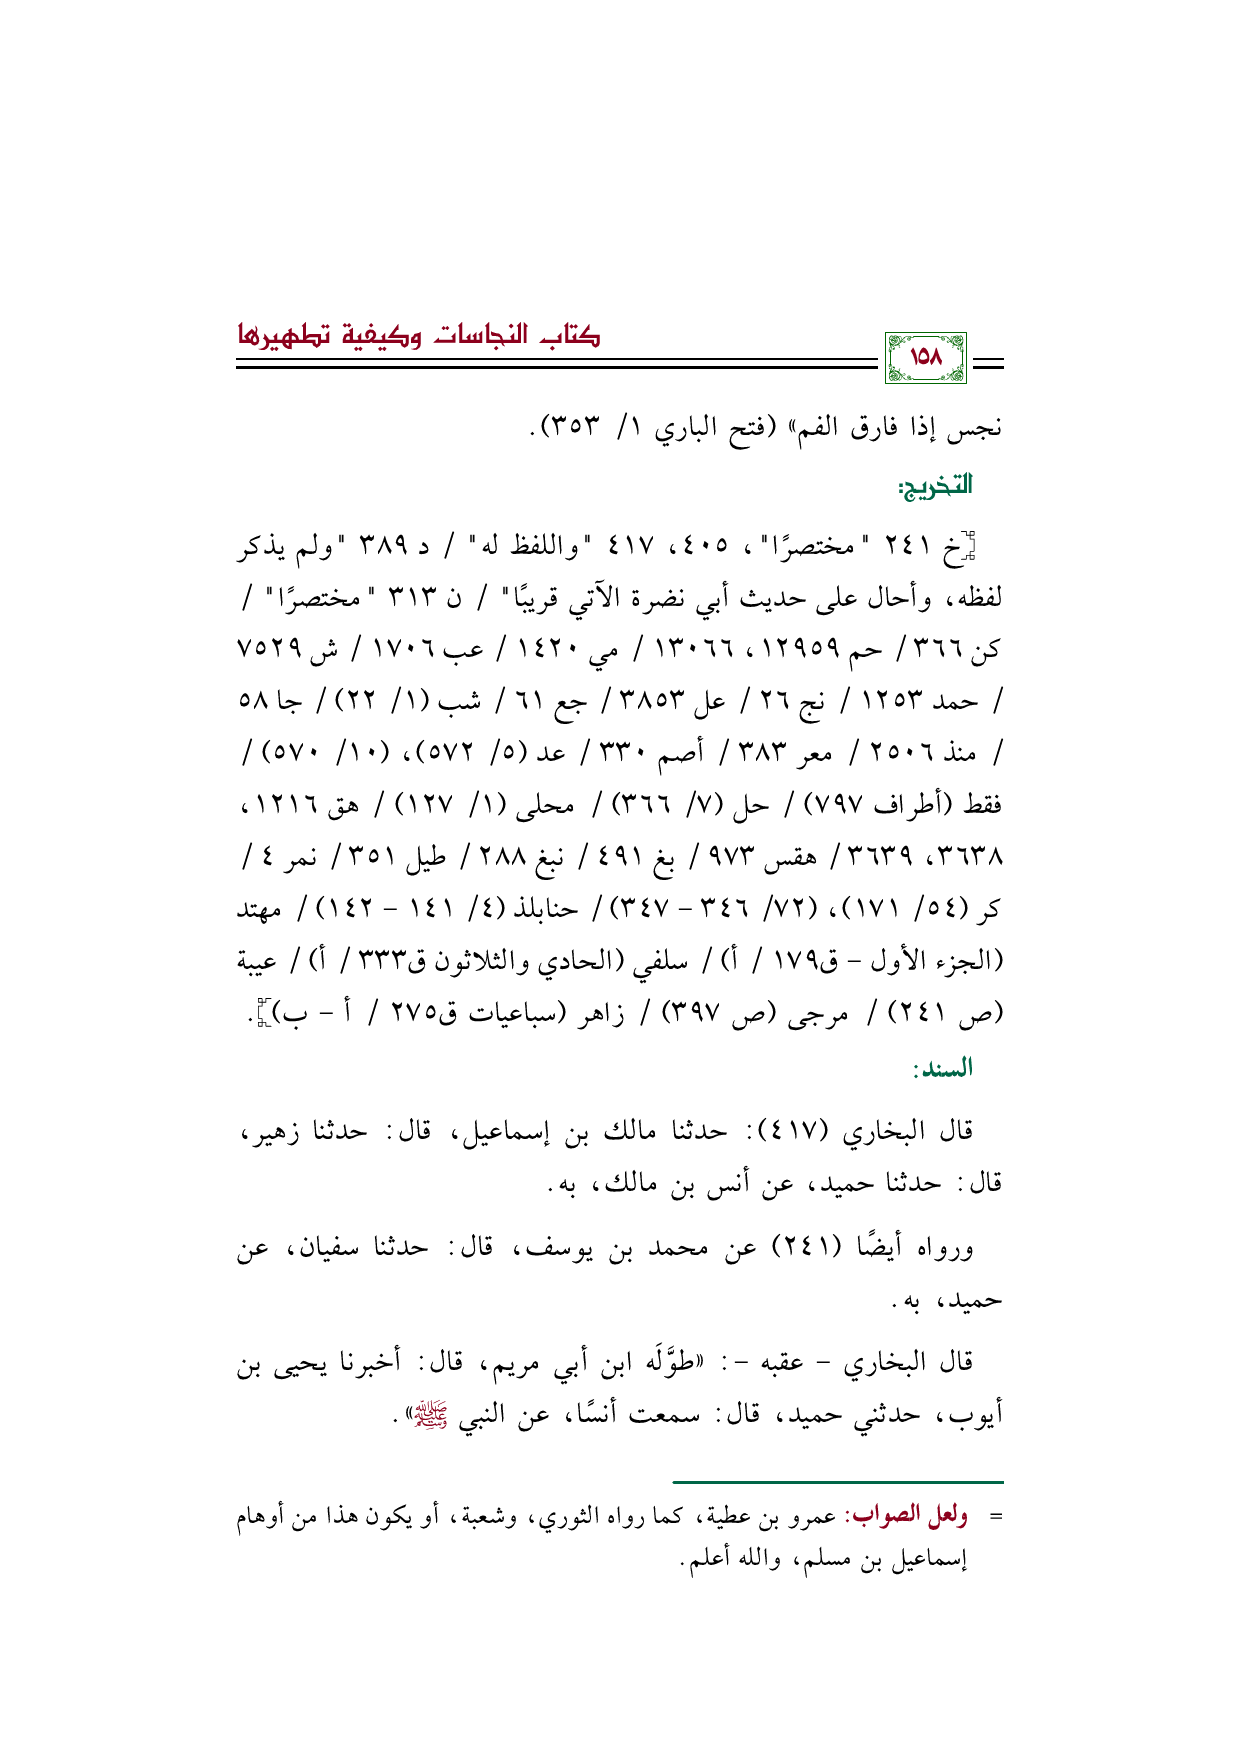 كتاب النجاسات وكيفية تطهيرها
١٥٨
نجس إذا فارق الفم» (فتح الباري ١/ ٣٥٣).
التخريج:
[خ ٢٤١ "مختصرًا"، ٤٠٥، ٤١٧ "واللفظ له" / د ٣٨٩ "ولم يذكر
لفظه، وأحال على حديث أبي نضرة الآتي قريبًا" / ن ٣١٣ "مختصرًا" /
كن ٣٦٦ / حم ١٢٩٥٩، ١٣٠٦٦ / مي ١٤٢٠ / عب ١٧٠٦ / ش ٧٥٢٩
/ حمد ١٢٥٣ / نج ٢٦ / عل ٣٨٥٣ / جع ٦١ / شب (١/ ٢٢) / جا ٥٨
/ منذ ٢٥٠٦ / معر ٣٨٣ / أصم ٣٣٠ / عد (٥/ ٥٧٢)، (١٠/ ٥٧٠) /
فقط (أطراف ٧٩٧) / حل (٧/ ٣٦٦) / محلى (١/ ١٢٧) / هق ١٢١٦،
٣٦٣٨، ٣٦٣٩ / هقس ٩٧٣ / بغ ٤٩١ / نبغ ٢٨٨ / طيل ٣٥١ / نمر ٤ /
كر (٥٤/ ١٧١)، (٧٢/ ٣٤٦ - ٣٤٧) / حنابلذ (٤/ ١٤١ - ١٤٢) / مهتد
(الجزء الأول - ق١٧٩ / أ) / سلفي (الحادي والثلاثون ق٣٣٣ / أ) / عيبة
(ص ٢٤١) / مرجى (ص ٣٩٧) / زاهر (سباعيات ق٢٧٥ / أ - ب)].
السند:
قال البخاري (٤١٧): حدثنا مالك بن إسماعيل، قال: حدثنا زهير،
قال: حدثنا حميد، عن أنس بن مالك، به.
ورواه أيضًا (٢٤١) عن محمد بن يوسف، قال: حدثنا سفيان، عن
حميد، به.
قال البخاري - عقبه -: «طوَّلَه ابن أبي مريم، قال: أخبرنا يحيى بن
أيوب، حدثني حميد، قال: سمعت أنسًا، عن النبي ﷺ».
= ولعل الصواب: عمرو بن عطية، كما رواه الثوري، وشعبة، أو يكون هذا من أوهام
إسماعيل بن مسلم، والله أعلم.